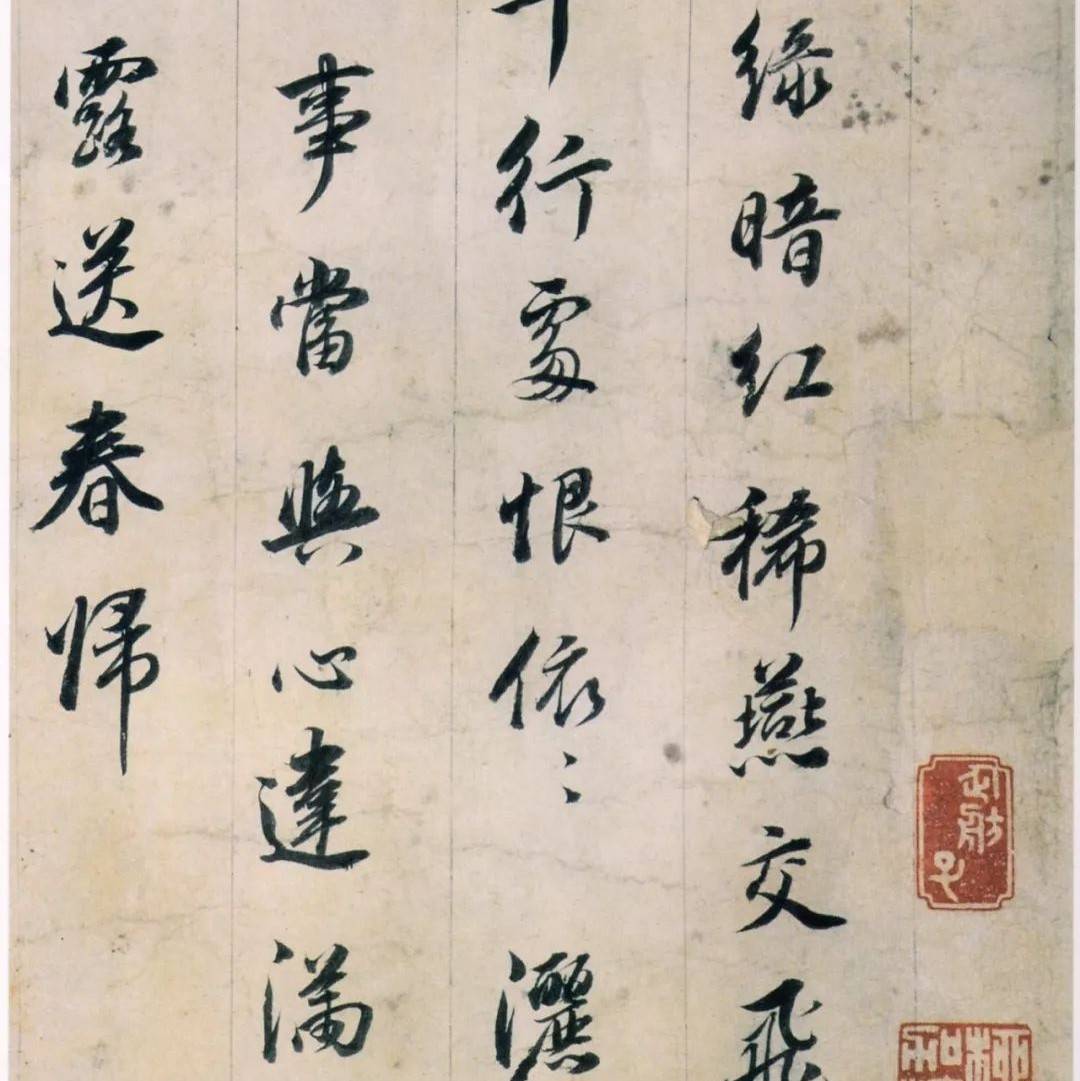 緑暗紅稀燕交飛
行處恨依〻灑
事當與心違滿
露送春帰